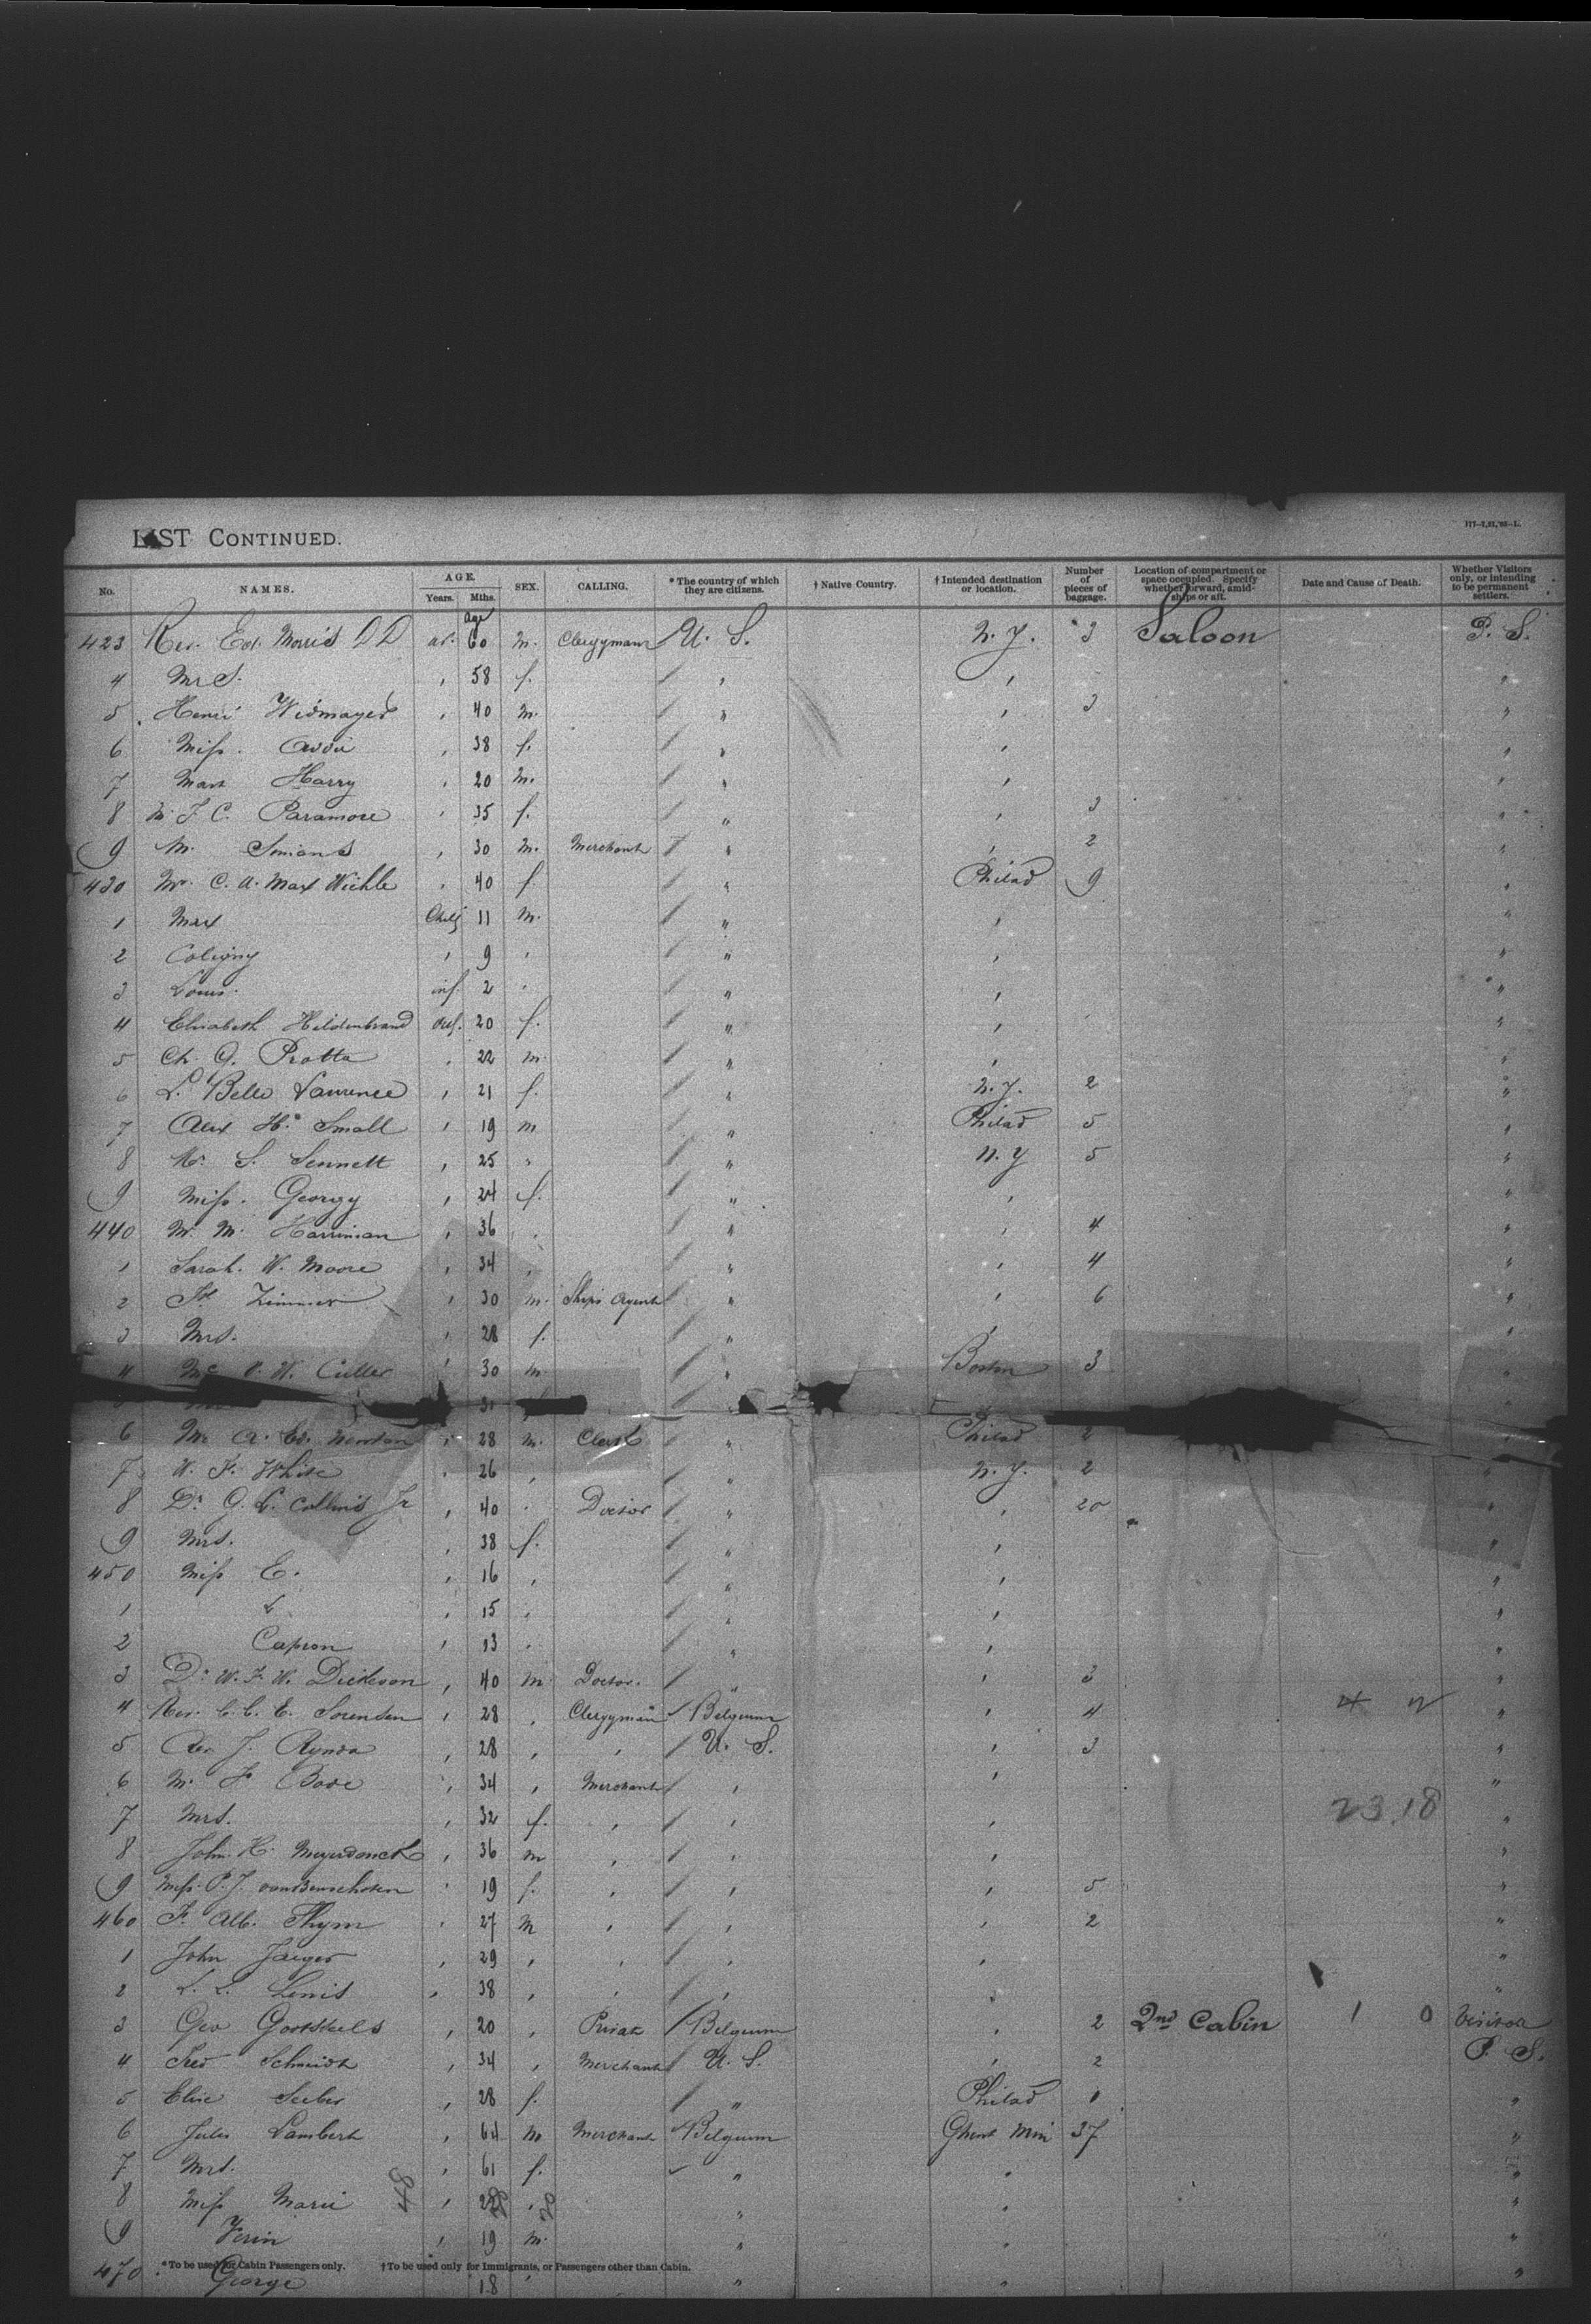 LIST CONTINUED.
177-7,21,'93-L.
No. NAMES. AGE. Years. Mths. SEX. CALLING. * The country of which they are citizens. † Native Country. † Intended destination or location. Number of pieces of baggage. Location of compartment or space occupied. Specify whether forward, amidships or aft. Date and Cause of Death. Whether Visitors only, or intending to be permanent settlers.
Age
423 Rev. Ed. Morris DD ad. 60 m. Clergyman U. S. N. Y. 3 Saloon P. S.
4 Mrs. " 58 f. " " "
5 Henri Widmayer " 40 m. " " 3 "
6 Miss. Addie " 38 f. " " "
7 Mast Harry " 20 m. " " "
8 M. F. C. Paramore " 35 f. " " 3 "
9 M. Simons " 30 m. Merchant " " 2 "
430 Mr. C. A. Max Wichle " 40 f. " Philad 9 "
1 Max Child 11 m. " " "
2 Coligny " 9 " " " "
3 Louis. inf. 2 " " " "
4 Elisabeth Hildenbrand ad. 20 f. " " "
5 Ch. G. Protta " 22 m. " " "
6 L. Belle Laurence " 21 f. " N. Y. 2 "
7 Alex H. Small " 19 m " Philad 5 "
8 Mr. S. Sennett " 25 " " N. Y 5 "
9 Miss. Georgy " 24 f. " " "
440 M. M. Harriman " 36 " " " 4 "
1 Sarah. W. Moore " 34 " " " 4 "
2 Zimmer " 30 m. Ships Agent " " 6 "
3 Mrs. " 28 f. " " "
4 W. Cutler " 30 m. " Boston 3 "
31
6 Mr. A. Ed. Newton " 28 m. Clerk " Philad 2 "
7 W. F. White " 26 " " N. Y. 2 "
8 Dr. G. L. Collins Jr " 40 " Doctor " " 20 "
9 Mrs. " 38 f. " " "
450 Miss E. " 16 " " " "
1 L " 15 " " " "
2 Capron " 13 " " " "
3 Dr. W. F. W. Dickeson " 40 m Doctor. " " 3 "
4 Rev. C. C. E. Sorensen " 28 " Clergyman Belgium " 4 "
5 Rev J. Rynda " 28 " " U. S. " 3 "
6 M. F. Bode " 34 " Merchant " " "
7 Mrs. " 32 f. " " " 23.18 "
8 John H. Meyerdonck " 36 m " " " "
9 Miss. P. J. vandenschoten " 19 f. " " " 5 "
460 F. Alb. Thym " 27 m " " " 2 "
1 John Jaeger " 29 " " " " "
2 L. L. Lewis " 38 " " " " "
3 Geo Goossheels " 20 " Privat Belgium " 2 2nd Cabin 1 0 Visitor
4 Fred Schmidt " 34 " Merchant U. S. " 2 P. S.
5 Elise Seeber " 28 f. " Philad 1 "
6 Jules Lambert " 64 m Merchant Belgium Ghent Min 37 "
7 Mrs. " 61 f. " " "
8 Miss Marie 48 " " " "
9 Firin " 19 m. " " "
470 George 18 " " " "
*To be used for Cabin Passengers only. †To be used only for Immigrants, or Passengers other than Cabin.